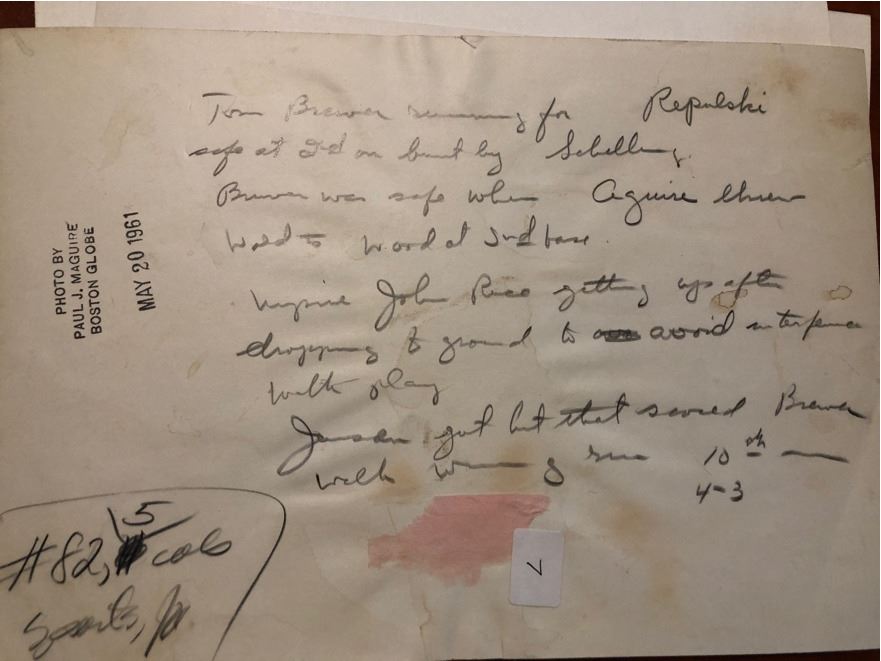 Tom Brewer running for Repulski
safe at 2d on bunt by Schilling.
Brewer was safe when Aguire threw
to Wood at 2nd base.
Umpire John Rice getting up after
dropping to ground to avoid interference
with play
Jensen got hit that scored Brewer
with winning run 10th
4-3
PHOTO BY
PAUL J. MAGUIRE
BOSTON GLOBE
MAY 20 1961
5
#82, cols
Sports,